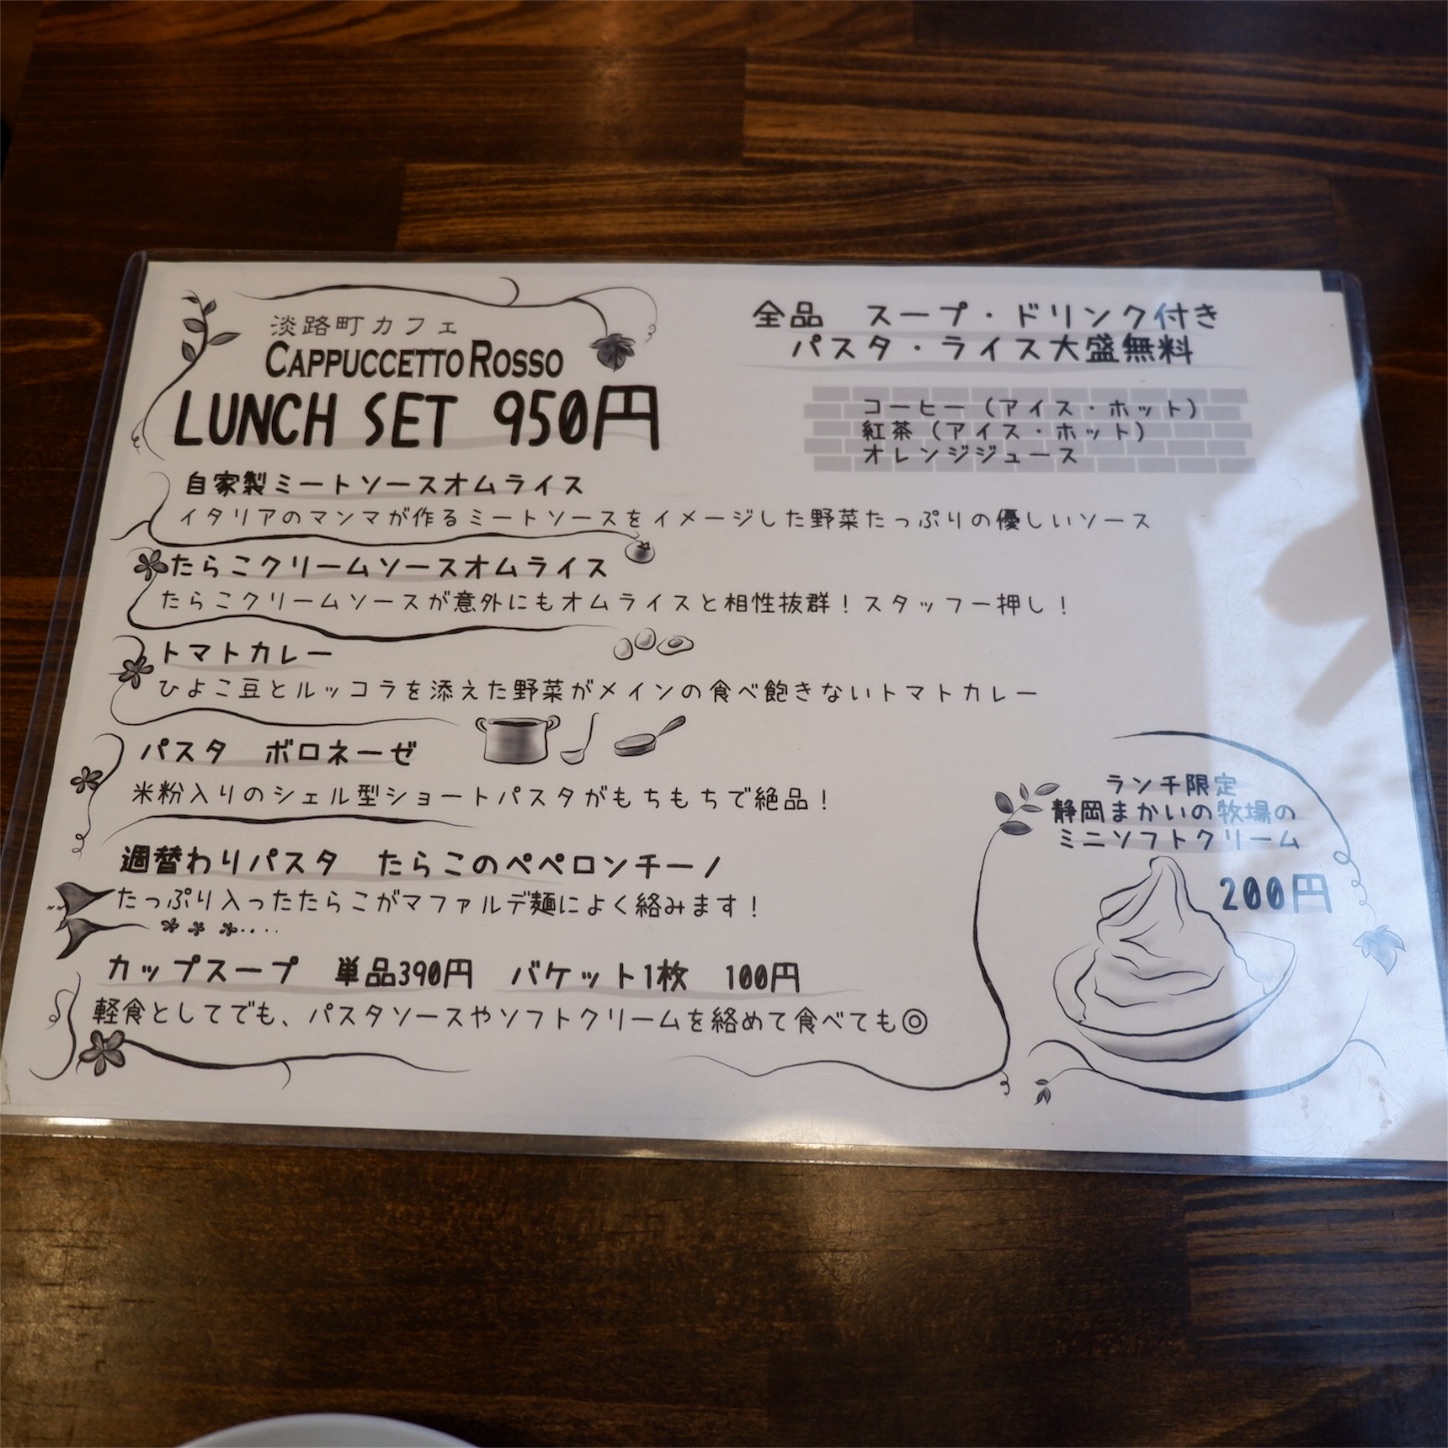 淡路町カフェ
CAPPUCCETTO ROSSO
LUNCH SET 950円
全品 スープ・ドリンク付き
パスタ・ライス大盛無料
コーヒー(アイス・ホット)
紅茶(アイス・ホット)
オレンジジュース
自家製ミートソースオムライス
イタリアのマンマが作るミートソースをイメージした野菜たっぷりの優しいソース
たらこクリームソースオムライス
たらこクリームソースが意外にもオムライスと相性抜群!スタッフ一押し!
トマトカレー
ひよこ豆とルッコラを添えた野菜がメインの食べ飽きないトマトカレー
パスタ ボロネーゼ
米粉入りのシェル型ショートパスタがもちもちで絶品!
週替わりパスタ たらこのペペロンチーノ
たっぷり入ったたらこがマファルデ麺によく絡みます!
カップスープ 単品390円 バケット1枚 100円
軽食としてでも、パスタソースやソフトクリームを絡めて食べても◎
ランチ限定
静岡まかいの牧場の
ミニソフトクリーム
200円